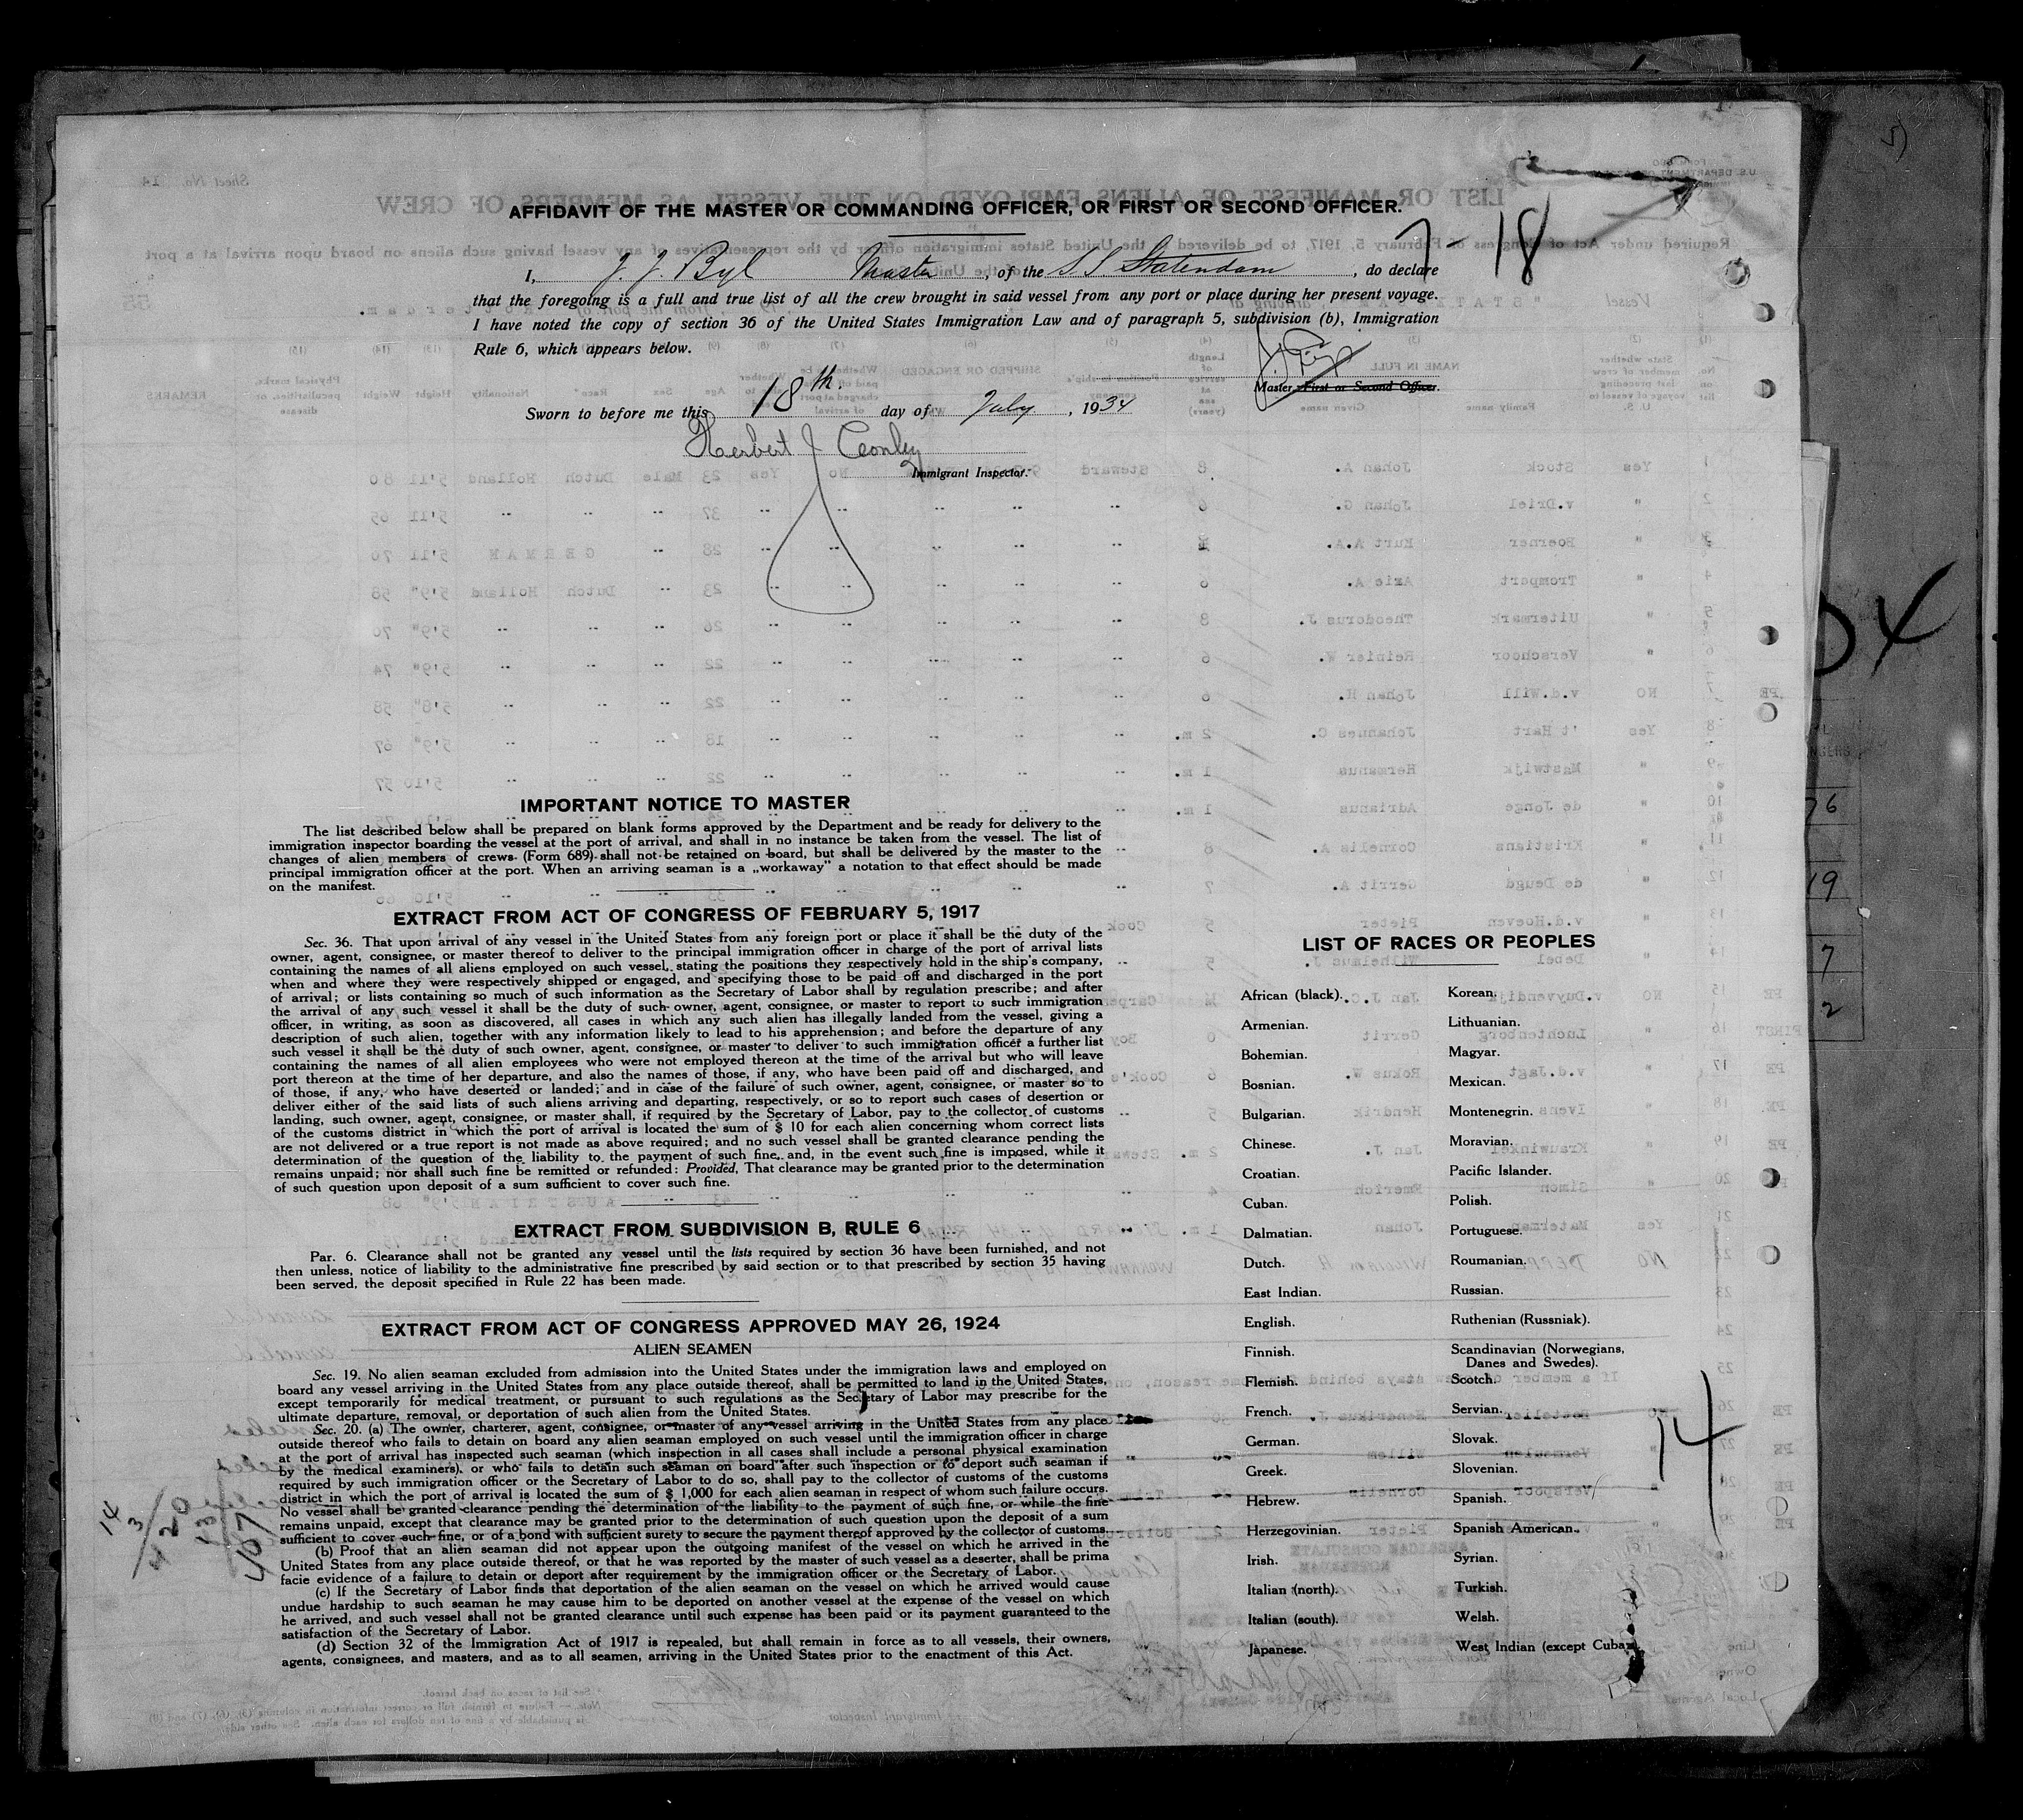 7-18
AFFIDAVIT OF THE MASTER OR COMMANDING OFFICER, OR FIRST OR SECOND OFFICER.
I, J. J. Byl Master, of the S S Statendam, do declare
that the foregoing is a full and true list of all the crew brought in said vessel from any port or place during her present voyage.
I have noted the copy of section 36 of the United States Immigration Law and of paragraph 5, subdivision (b), Immigration
Rule 6, which appears below.
Master, First or Second Officer.
Sworn to before me this 18th. day of July, 1934
Herbert J Conley
Immigrant Inspector.
IMPORTANT NOTICE TO MASTER
The list described below shall be prepared on blank forms approved by the Department and be ready for delivery to the
immigration inspector boarding the vessel at the port of arrival, and shall in no instance be taken from the vessel. The list of
changes of alien members of crews (Form 689) shall not be retained on board, but shall be delivered by the master to the
principal immigration officer at the port. When an arriving seaman is a „workaway" a notation to that effect should be made
on the manifest.
EXTRACT FROM ACT OF CONGRESS OF FEBRUARY 5, 1917
Sec. 36. That upon arrival of any vessel in the United States from any foreign port or place it shall be the duty of the
owner, agent, consignee, or master thereof to deliver to the principal immigration officer in charge of the port of arrival lists
containing the names of all aliens employed on such vessel, stating the positions they respectively hold in the ship's company,
when and where they were respectively shipped or engaged, and specifying those to be paid off and discharged in the port
of arrival; or lists containing so much of such information as the Secretary of Labor shall by regulation prescribe; and after
the arrival of any such vessel it shall be the duty of such owner, agent, consignee, or master to report to such immigration
officer, in writing, as soon as discovered, all cases in which any such alien has illegally landed from the vessel, giving a
description of such alien, together with any information likely to lead to his apprehension; and before the departure of any
such vessel it shall be the duty of such owner, agent, consignee, or master to deliver to such immigration officer a further list
containing the names of all alien employees who were not employed thereon at the time of the arrival but who will leave
port thereon at the time of her departure, and also the names of those, if any, who have been paid off and discharged, and
of those, if any, who have deserted or landed; and in case of the failure of such owner, agent, consignee, or master so to
deliver either of the said lists of such aliens arriving and departing, respectively, or so to report such cases of desertion or
landing, such owner, agent, consignee, or master shall, if required by the Secretary of Labor, pay to the collector of customs
of the customs district in which the port of arrival is located the sum of $ 10 for each alien concerning whom correct lists
are not delivered or a true report is not made as above required; and no such vessel shall be granted clearance pending the
determination of the question of the liability to the payment of such fine, and, in the event such fine is imposed, while it
remains unpaid; nor shall such fine be remitted or refunded: Provided, That clearance may be granted prior to the determination
of such question upon deposit of a sum sufficient to cover such fine.
EXTRACT FROM SUBDIVISION B, RULE 6
Par. 6. Clearance shall not be granted any vessel until the lists required by section 36 have been furnished, and not
then unless, notice of liability to the administrative fine prescribed by said section or to that prescribed by section 35 having
been served, the deposit specified in Rule 22 has been made.
EXTRACT FROM ACT OF CONGRESS APPROVED MAY 26, 1924
ALIEN SEAMEN
Sec. 19. No alien seaman excluded from admission into the United States under the immigration laws and employed on
board any vessel arriving in the United States from any place outside thereof, shall be permitted to land in the United States,
except temporarily for medical treatment, or pursuant to such regulations as the Secretary of Labor may prescribe for the
ultimate departure, removal, or deportation of such alien from the United States.
Sec. 20. (a) The owner, charterer, agent, consignee, or master of any vessel arriving in the United States from any place
outside thereof who fails to detain on board any alien seaman employed on such vessel until the immigration officer in charge
at the port of arrival has inspected such seaman (which inspection in all cases shall include a personal physical examination
by the medical examiners), or who fails to detain such seaman on board after such inspection or to deport such seaman if
required by such immigration officer or the Secretary of Labor to do so, shall pay to the collector of customs of the customs
district in which the port of arrival is located the sum of $ 1,000 for each alien seaman in respect of whom such failure occurs.
No vessel shall be granted clearance pending the determination of the liability to the payment of such fine, or while the fine
remains unpaid, except that clearance may be granted prior to the determination of such question upon the deposit of a sum
sufficient to cover such fine, or of a bond with sufficient surety to secure the payment thereof approved by the collector of customs.
(b) Proof that an alien seaman did not appear upon the outgoing manifest of the vessel on which he arrived in the
United States from any place outside thereof, or that he was reported by the master of such vessel as a deserter, shall be prima
facie evidence of a failure to detain or deport after requirement by the immigration officer or the Secretary of Labor.
(c) If the Secretary of Labor finds that deportation of the alien seaman on the vessel on which he arrived would cause
undue hardship to such seaman he may cause him to be deported on another vessel at the expense of the vessel on which
he arrived, and such vessel shall not be granted clearance until such expense has been paid or its payment guaranteed to the
satisfaction of the Secretary of Labor.
(d) Section 32 of the Immigration Act of 1917 is repealed, but shall remain in force as to all vessels, their owners,
agents, consignees, and masters, and as to all seamen, arriving in the United States prior to the enactment of this Act.
LIST OF RACES OR PEOPLES
African (black).
Armenian.
Bohemian.
Bosnian.
Bulgarian.
Chinese.
Croatian.
Cuban.
Dalmatian.
Dutch.
East Indian.
English.
Finnish.
Flemish.
French.
German.
Greek.
Hebrew.
Herzegovinian.
Irish.
Italian (north).
Italian (south).
Japanese.
Korean.
Lithuanian.
Magyar.
Mexican.
Montenegrin.
Moravian.
Pacific Islander.
Polish.
Portuguese.
Roumanian.
Russian.
Ruthenian (Russniak).
Scandinavian (Norwegians,
Danes and Swedes).
Scotch.
Servian.
Slovak.
Slovenian.
Spanish.
Spanish American.
Syrian.
Turkish.
Welsh.
West Indian (except Cuban).
14
76
19
7
2